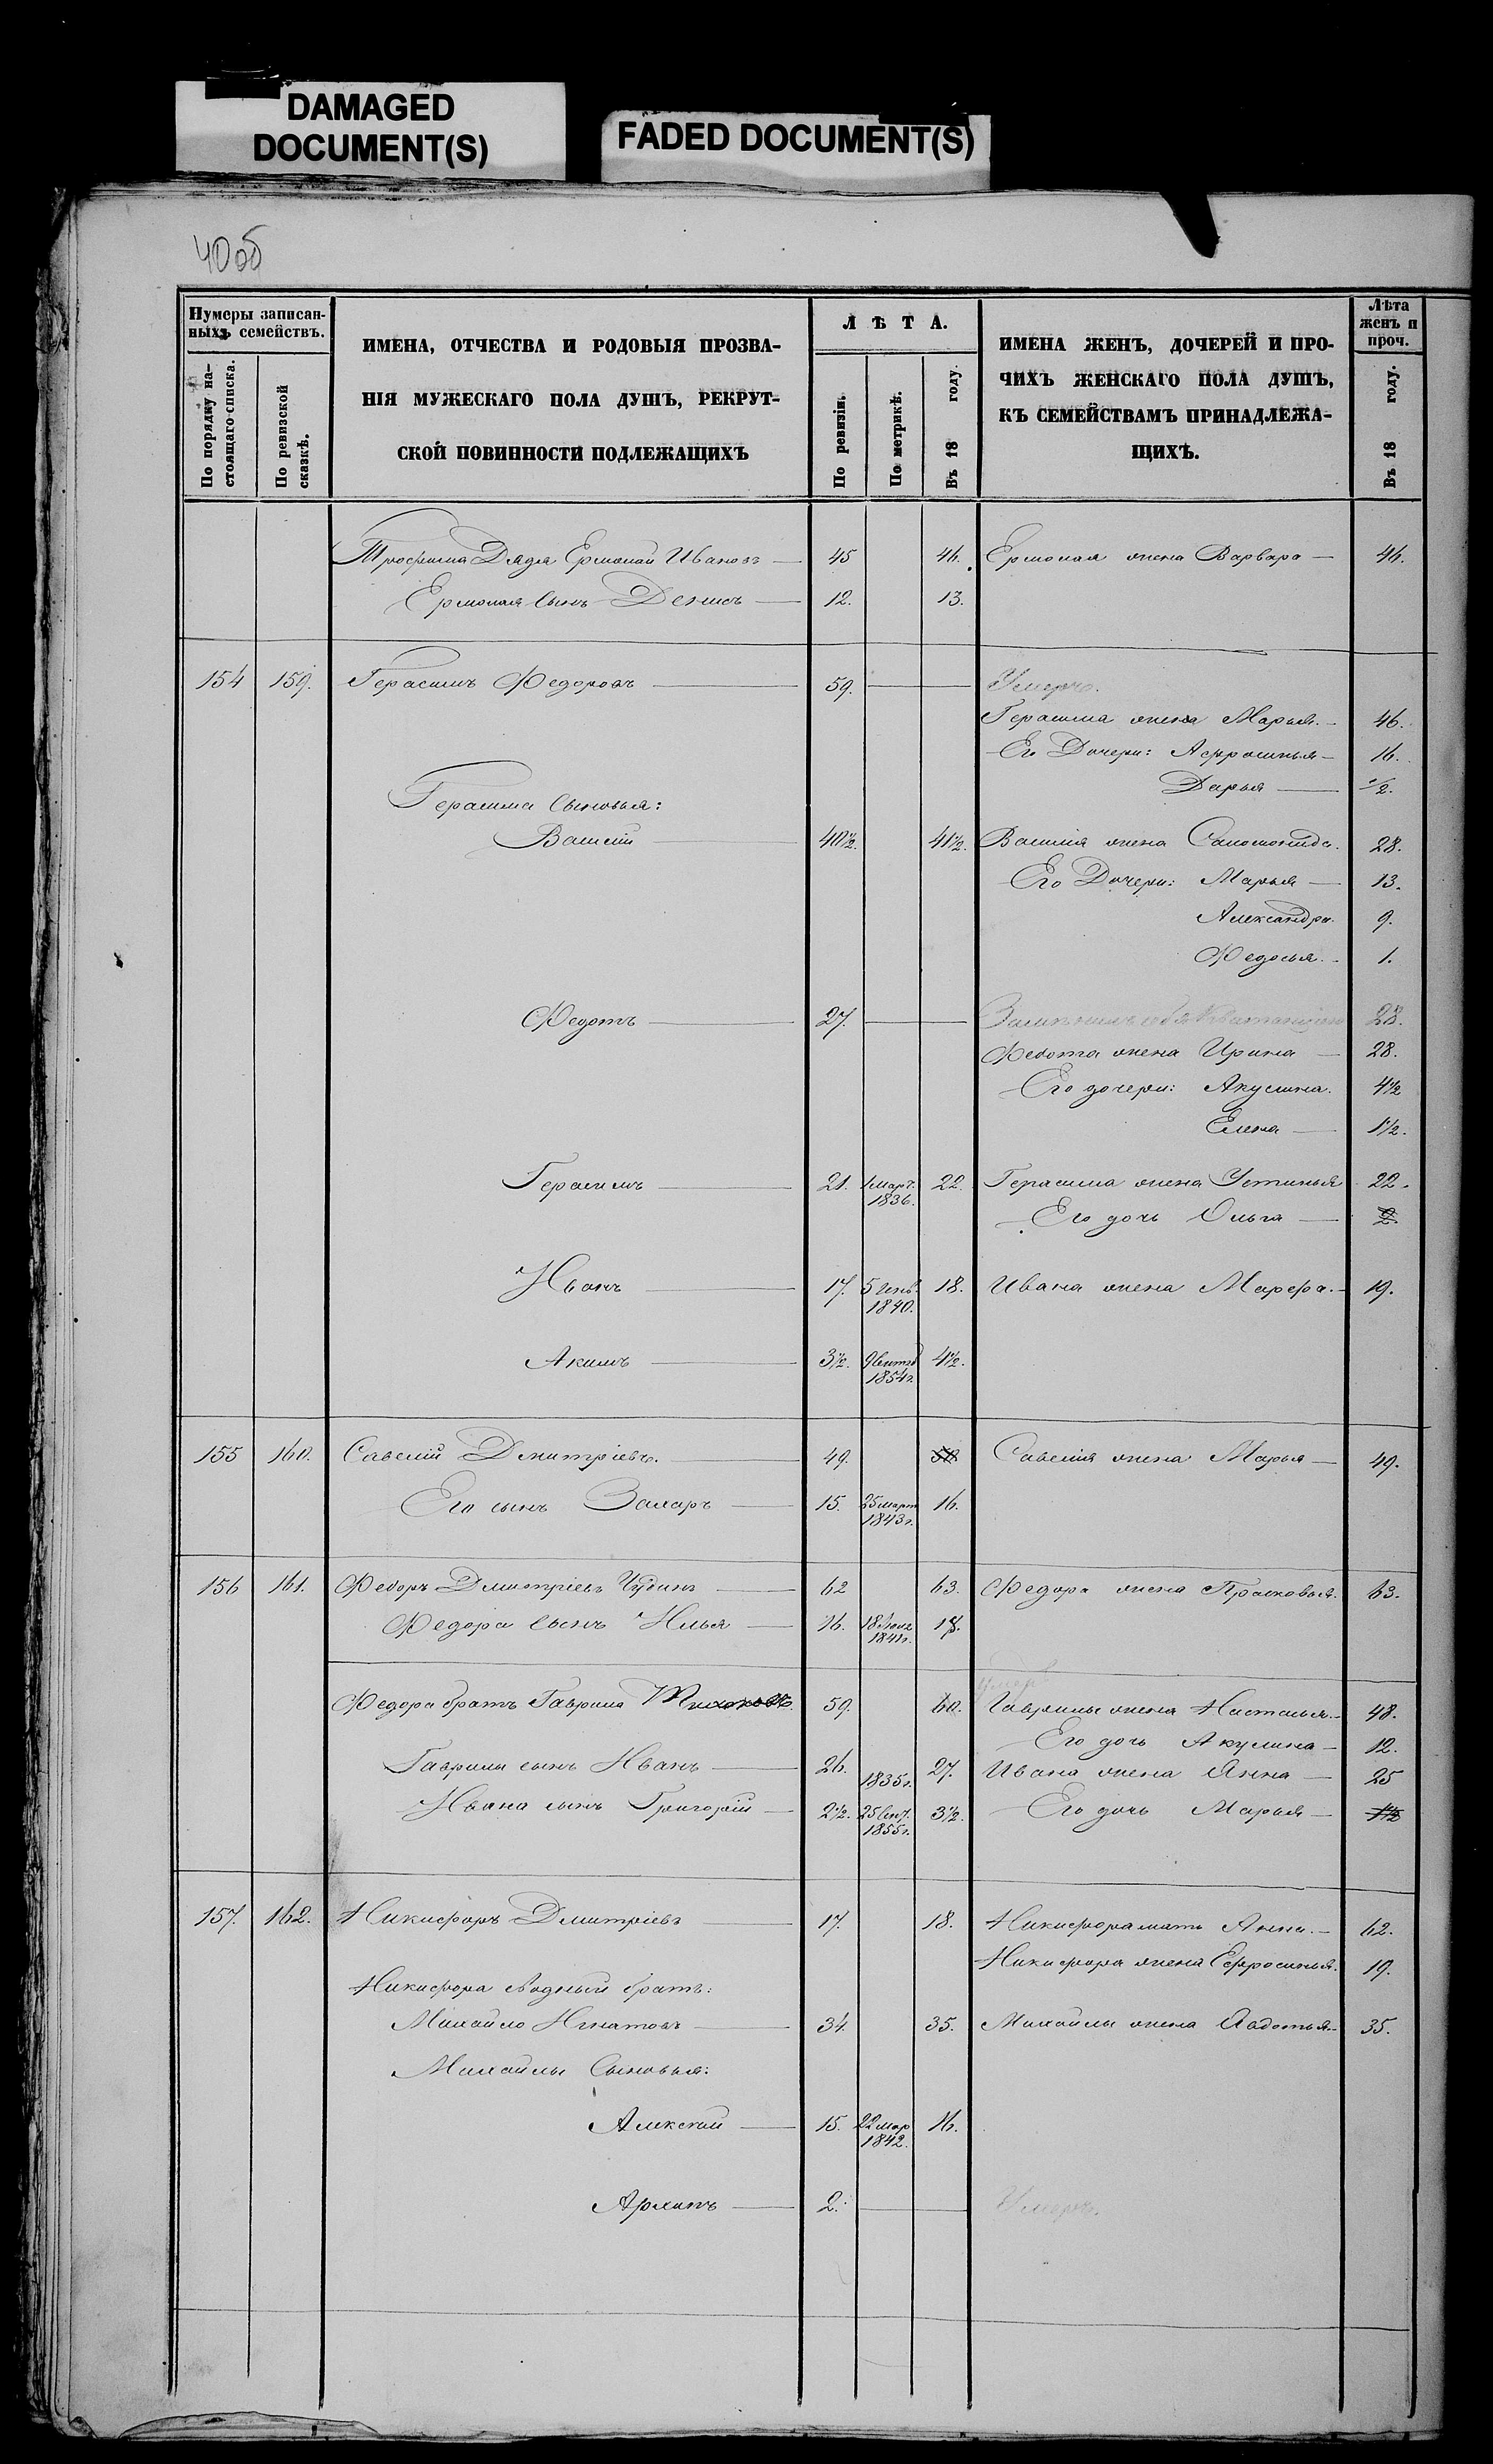 DAMAGED
DOCUMENT(S)
FADED DOCUMENT(S)
40об
Нумеры записан-
ныхъ семействъ.
По порядку на-
стоящаго списка.
По ревизской
сказкѣ.
ИМЕНА, ОТЧЕСТВА И РОДОВЫЯ ПРОЗВА-
НІЯ МУЖЕСКАГО ПОЛА ДУШЪ, РЕКРУТ-
СКОЙ ПОВИННОСТИ ПОДЛЕЖАЩИХЪ
ЛѢТА.
По ревизіи.
По метрикѣ.
Въ 18 году.
ИМЕНА ЖЕНЪ, ДОЧЕРЕЙ И ПРО-
ЧИХЪ ЖЕНСКАГО ПОЛА ДУШЪ,
КЪ СЕМЕЙСТВАМЪ ПРИНАДЛЕЖА-
ЩИХЪ.
Лѣта
женъ и
проч.
Въ 18 году.
Трофима Дядя Ермолай Ивановъ 45 46. Ермолая жена Варвара 46.
Ермолая Сынъ Денисъ 12. 13.
154 159. Герасимъ Федоровъ 59. Умеръ.
Герасима жена Марья 46.
Его Дочери: Афросинья 16.
Дарья 1/2.
Герасима Сыновья:
Василій 40 1/2. 41 1/2. Василія жена Саломонида 28.
Его Дочери: Марья 13.
Александра 9.
Федосья 1.
Федотъ 27. 28.
Федота жена Ирина 28.
Его дочери: Акулина 4 1/2
Елена 1 1/2.
Герасимъ 21. 1 март. 22. Герасима жена Устинья 22.
1836.
Его дочь Ольга 2.
Иванъ 17. 5 Генв. 18. Ивана жена Марфа 19.
1840.
Акимъ 3 1/2. 9 Сентяб 4 1/2.
1854 г.
155 160. Савелій Дмитріевъ. 49. 50 Савелія жена Марья 49.
Его сынъ Захаръ 15. 25 март 16.
1843 г.
156 161. Федоръ Дмитріевъ Чудинъ 62 63. Федора жена Прасковья 63.
Федора Сынъ Илья 16. 18 Іюля 17.
1841 г.
умеръ
Федора братъ Гаврила Тихоновъ 59. 60. Гаврилы жена Настасья 48.
Его дочь Акулина 12.
Гаврилы сынъ Иванъ 26. 1835 г. 27. Ивана жена Анна 25
Ивана сынъ Григорій 2 1/2. 25 Сент. 3 1/2. Его дочь Марья 1 1/2
1855 г.
157. 162. Никифоръ Дмитріевъ 17. 18. Никифора мать Анна 62.
Никифора жена Ефросинья 19.
Никифора Сводный братъ:
Михайло Игнатовъ 34. 35. Михайлы жена Авдотья 35.
Михайлы Сыновья:
Алексѣй 15. 22 мар 16.
1842.
Архипъ 2. Умеръ.